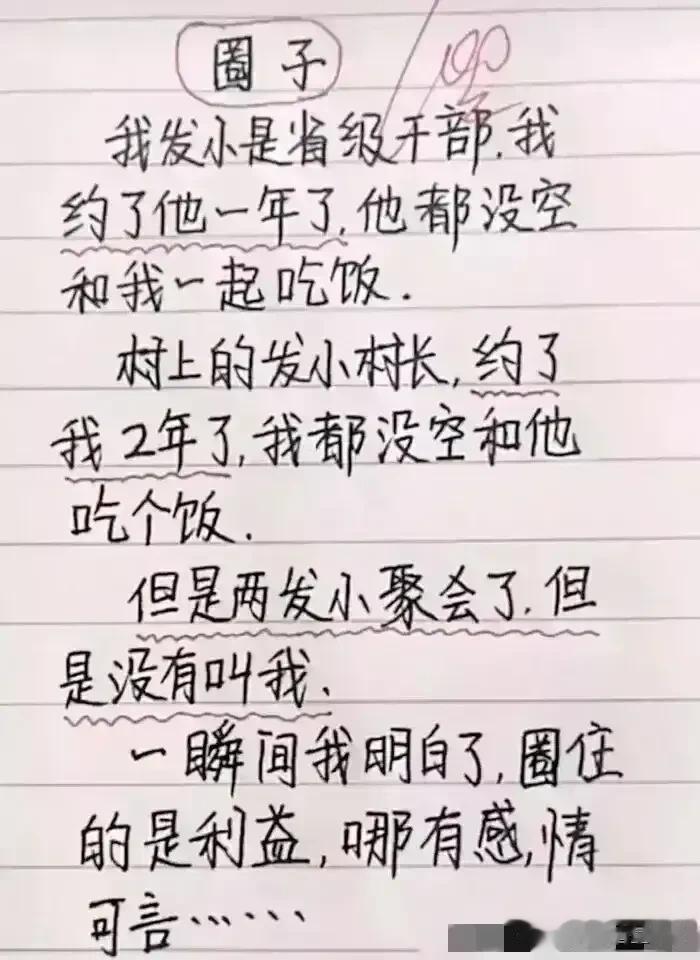 圈子
100
我发小是省级干部.我
约了他一年了,他都没空
和我一起吃饭.
村上的发小村长,约了
我2年了,我都没空和他
吃个饭.
但是两发小聚会了.但
是没有叫我.
一瞬间我明白了,圈住
的是利益,哪有感,情
可言……